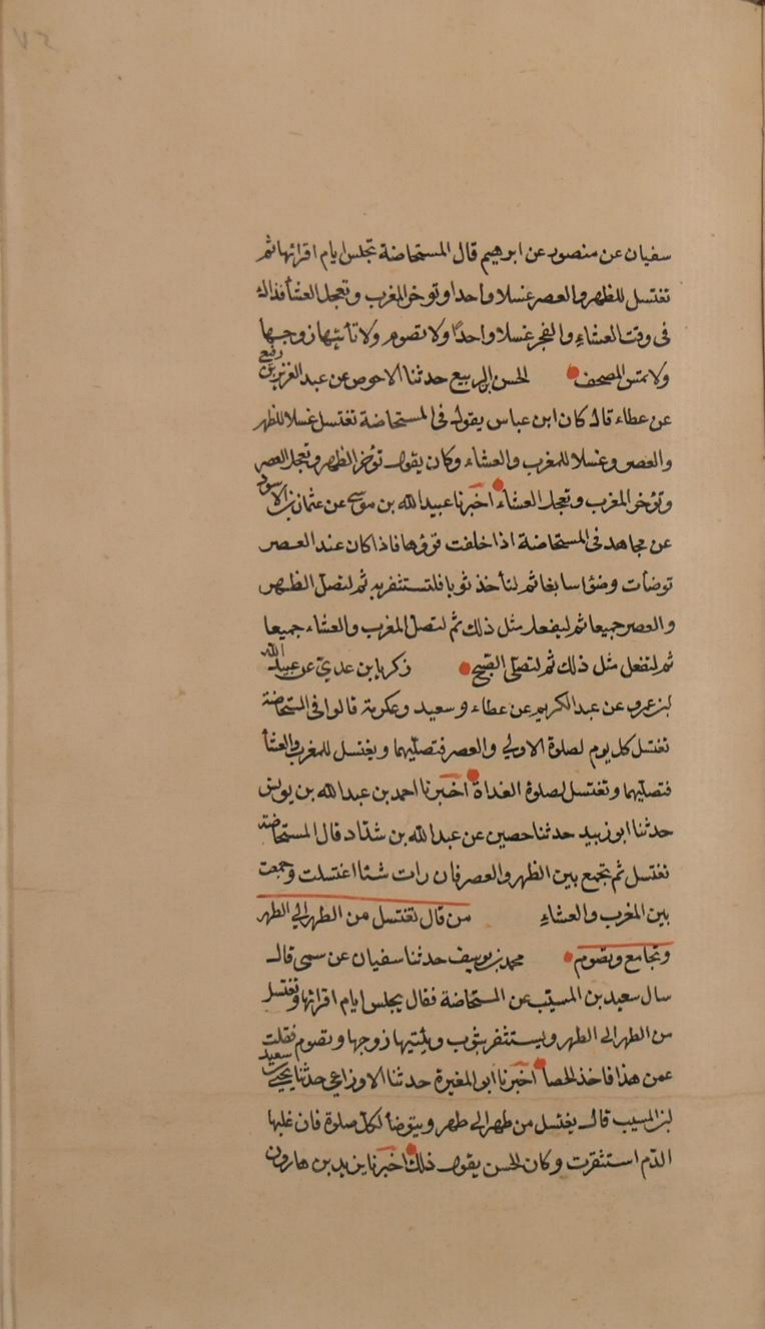 ٧٢
سفيان عن منصور عن ابرهيم قال المستحاضة تجلس ايام اقرائها ثم
تغتسل للظهر والعصر غسلا واحدا وتوخر المغرب وتعجل العشأ فذالك
فى وقت العشاءِ والفجر غسلا واحدًا ولا تصوم ولا تأتيها زوجها
ولا تمس المصحف الحسن بن الربيع حدثنا الاحوص عن عبد العزيز بن رفيع
عن عطاء قال كان ابن عباس يقول فى المستحاضة تغتسل غسلا للظهر
والعصر وغسلا للمغرب والعشاء وكان يقول تؤخر الظهر وتعجل العصر
وتؤخر المغرب وتعجل العشاء اخبرنا عبيد الله بن موسى عن عثمان بن الاسود
عن مجاهد فى المستحاضة اذا خلفت قروها فاذا كان عند العصر
توضأت وضوا سابغا ثم لتأخذ ثوبا فلتستثفر به ثم لتصل الظهر
والعصر جميعا ثم ليفعل مثل ذلك ثم لتصل المغرب والعشاء جميعا
ثم لتفعل مثل ذلك ثم لتصلى الصبح زكريا بن عدي عن عبيد الله
بن عمرو عن عبد الكريم عن عطاء و سعيد وعكرمة قالوا فى المستحاضة
تغتسل كل يوم لصلوة الاولى والعصر فتصليهما ويغتسل للمغرب والعشأ
فتصليهما وتغتسل لصلوة الغداة اخبرنا احمد بن عبد الله بن يونس
حدثنا ابو زبيد حدثنا حصين عن عبد الله بن شداد قال المستحاضة
تغتسل ثم تجمع بين الظهر والعصر فان رات شئا اغتسلت وجمعت
بين المغرب والعشاءِ من قال تغتسل من الطهر الى الطهر
وتجامع وتصوم محمد بن يوسف حدثنا سفيان عن سمى قال
سال سعيد بن المسيب عن المستحاضة فقال يجلس ايام اقرائها وتغتسل
من الطهر الى الطهر ويستثفر بثوب ويئتيها زوجها وتصوم فقلت
عمن هذا فاخذ الحصا اخبرنا ابو المغيرة حدثنا الاوزاعي حدثنا يحيى بن سعيد
بن المسيب قال يغتسل من طهر الى طهر ويتوضأ لكل صلوة فان غلبها
الدّم استثفرت وكان الحسن يقول ذلك اخبرنا يزيد بن هارون